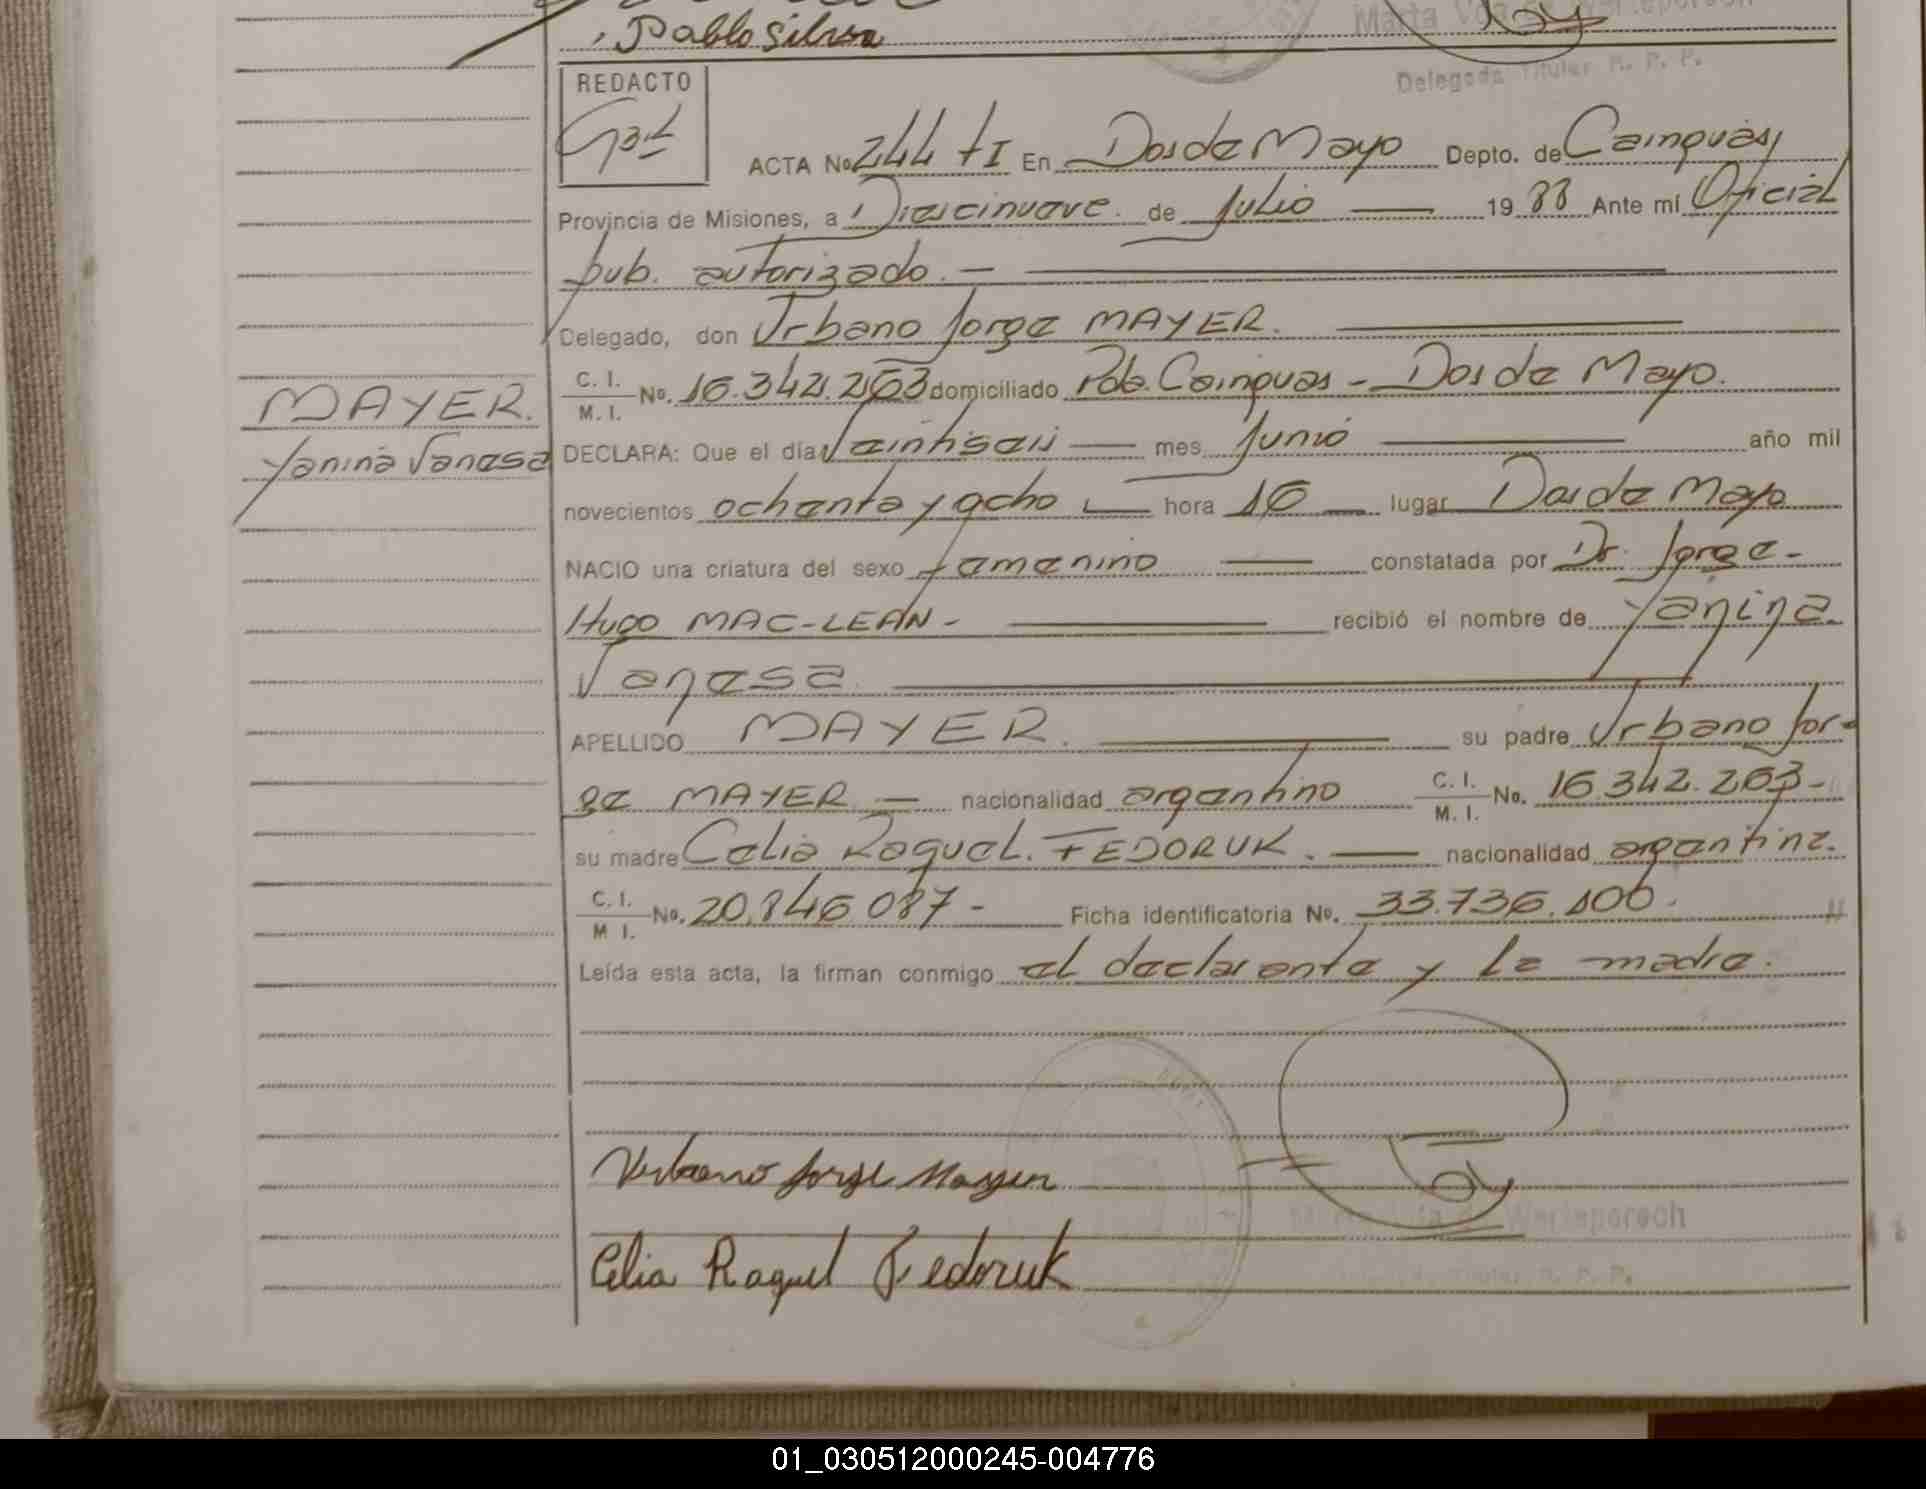 Pablo Silva
Delegada Titular R. P. P.
REDACTO
ACTA No. 244 tI En Dos de Mayo Depto. de Cainguas,
Provincia de Misiones, a Diescinueve de Julio 19 88 Ante mí Oficial
pub. autorizado.
Delegado, don Urbano Jorge MAYER.
C. I.
M. I. No. 16.342.263 domiciliado Pdo. Cainguas - Dos de Mayo.
MAYER.
Yanina Vanesa
DECLARA: Que el día Veintiseis mes Junio año mil
novecientos ochenta y ocho hora 16 lugar Dos de Mayo
NACIO una criatura del sexo femenino constatada por Dr. Jorge -
Hugo MAC-LEAN - recibió el nombre de Yanina
Vanesa
APELLIDO MAYER. su padre Urbano Jor-
ge MAYER nacionalidad argentino C. I.
M. I. No. 16.342.263 -
su madre Celia Raquel. FEDORUK. nacionalidad argentina.
C. I.
M I. No. 20.846.087 - Ficha identificatoria No. 33.736.100.
Leída esta acta, la firman conmigo el declarante y la madre.
Urbano Jorge Mayer
Marta Vda de Werleporech
Celia Raquel Fedoruk
01_030512000245-004776